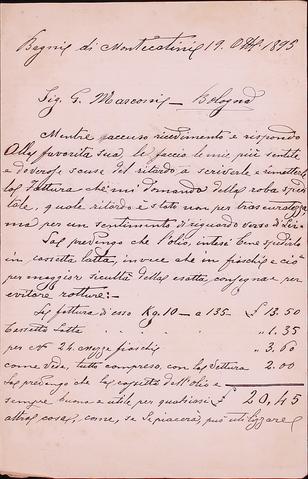 Bagni di Montecatini 19. Ott. 1895
Sig. G. Masconi – Bologna
Mentre accuso ricevimento e rispondo
Alla favorita sua, le faccio le mie più sentite
e doverose scuse del ritardo a scriverle e rimetterle
la fattura che mi domanda della roba spe
tale, quale ritardo è stato non per trascuratezza
ma per un sentimento di riguardo verso di Lei.
La prevengo che l'olio, intesi bene spedirlo
in cassetta latta, invece che in fiaschi e ciò
per maggior sicurtà della esatta consegna e per
evitare rotture:-
La fattura di esso Kg. 10 – a 135. £ 13.50
Cassetta Latta " 1.35
per n° 24. mezze fiaschi " 3.60
come vede, tutto compreso, con la vettura 2.00
La prevengo che la cassetta dell'olio è
sempre buona e utile per qualsiasi £ 20,45
altra cosa, come, se Le piacerà, può utilizzarla